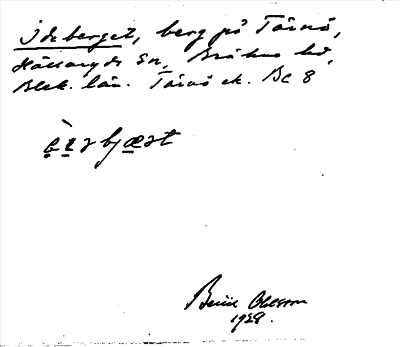 Ideberget, berg på Tärnö,
Hällaryds sn, Bräkne hd,
Blek. län. Tärnö ek. Bc 8
Bertil Olsson
1928.